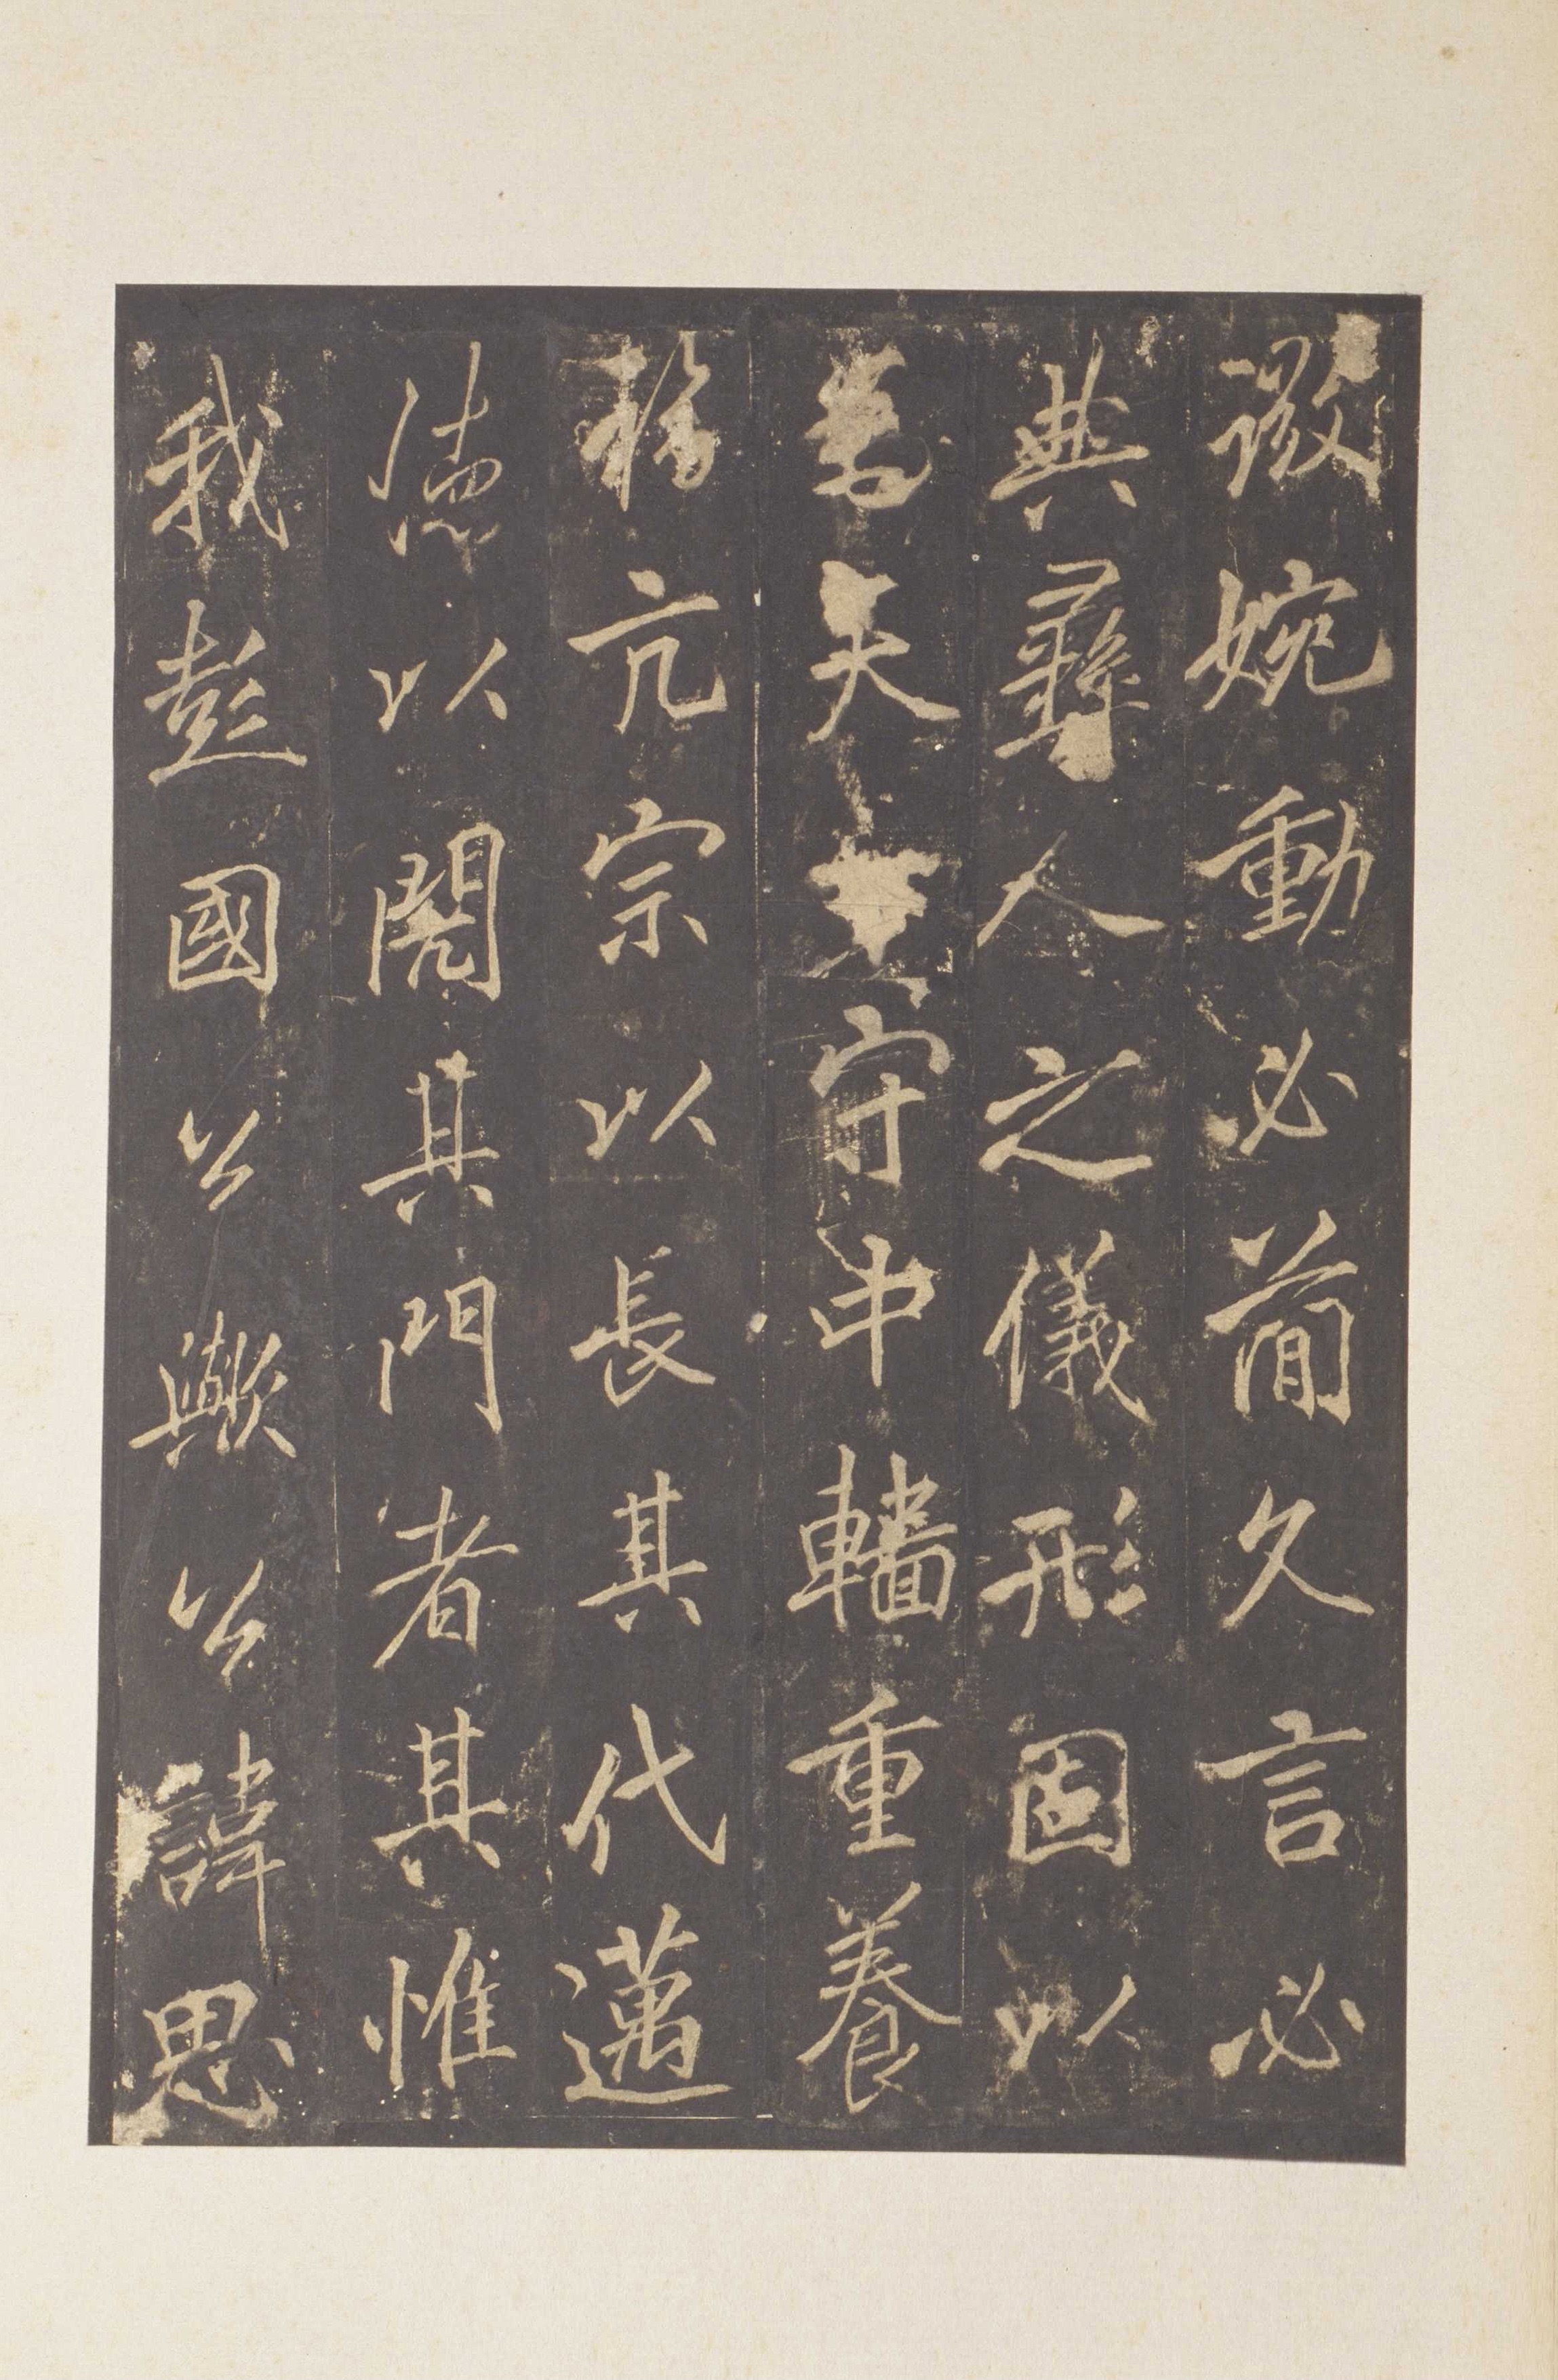 婉動必簡久言必
典彝人之儀形固以
夫守中轖重養
亢宗以長其代邁
德以閌其門者其惟
我彭國公歟公諱思